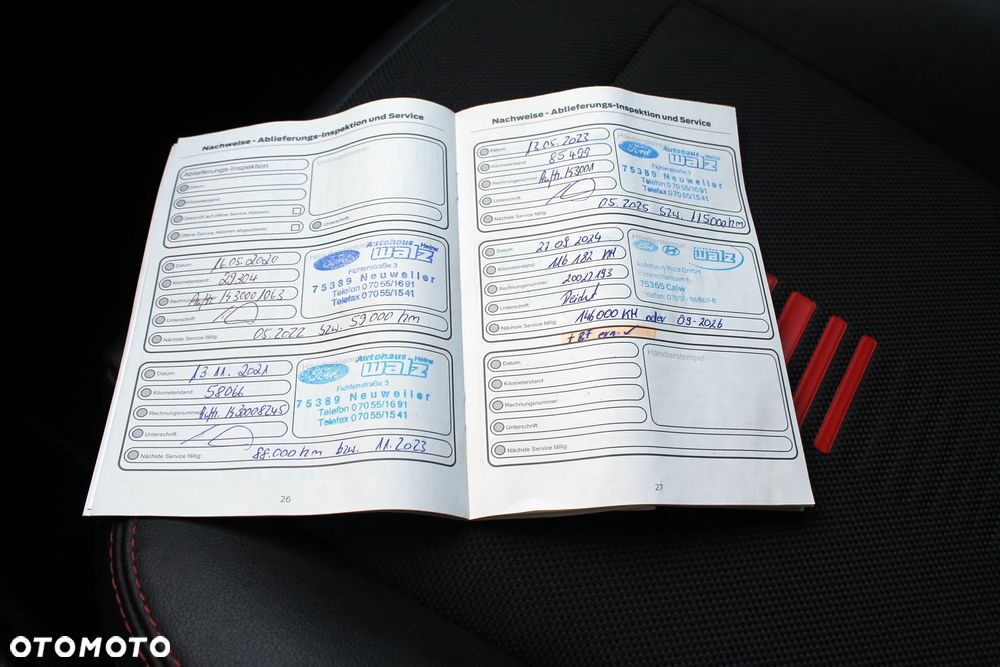 Nachweise - Ablieferungs-Inspektion und Service
Ablieferungs-Inspektion
Vertragspartner
Datum:
Kilometerstand:
Überprüft auf offene Service Aktionen
Offene Service Aktionen abgearbeitet
Unterschrift:
Datum: 16.05.2020
Kilometerstand: 29304
Rechnungsnummer: Auftr. 143000/063
Unterschrift:
Nächste Service fällig: 05.2022 bzw. 59.000 km
Ford Autohaus Heinz
Walz
Fichtenstraße 3
75389 Neuweiler
Telefon 07055/1691
Telefax 07055/1541
Datum: 13.11.2021
Kilometerstand: 58066
Rechnungsnummer:
Unterschrift:
Nächste Service fällig: 88.000 km bzw. 11.2023
Ford Autohaus Heinz
Walz
Fichtenstraße 3
75389 Neuweiler
Telefon 07055/1691
Telefax 07055/1541
26
Nachweise - Ablieferungs-Inspektion und Service
Datum: 12.05.2023
Kilometerstand: 85499
Rechnungsnummer:
Unterschrift:
Nächste Service fällig: 05.2025 bzw. 115000km
Händlerstempel
Ford Autohaus Heinz
Walz
Fichtenstraße 3
75389 Neuweiler
Telefon 07055/1691
Telefax 07055/1541
Datum: 27.09.2024
Kilometerstand: 116 182 KM
Rechnungsnummer: 20027193
Unterschrift:
Nächste Service fällig: 146 000 KM oder 09-2026
+ BF ern. ✓
Händlerstempel
Ford
AUTOHAUS
walz
Autohaus Walz GmbH
75365 Calw
Datum:
Kilometerstand:
Rechnungsnummer:
Unterschrift:
Nächste Service fällig:
Händlerstempel
27
OTOMOTO